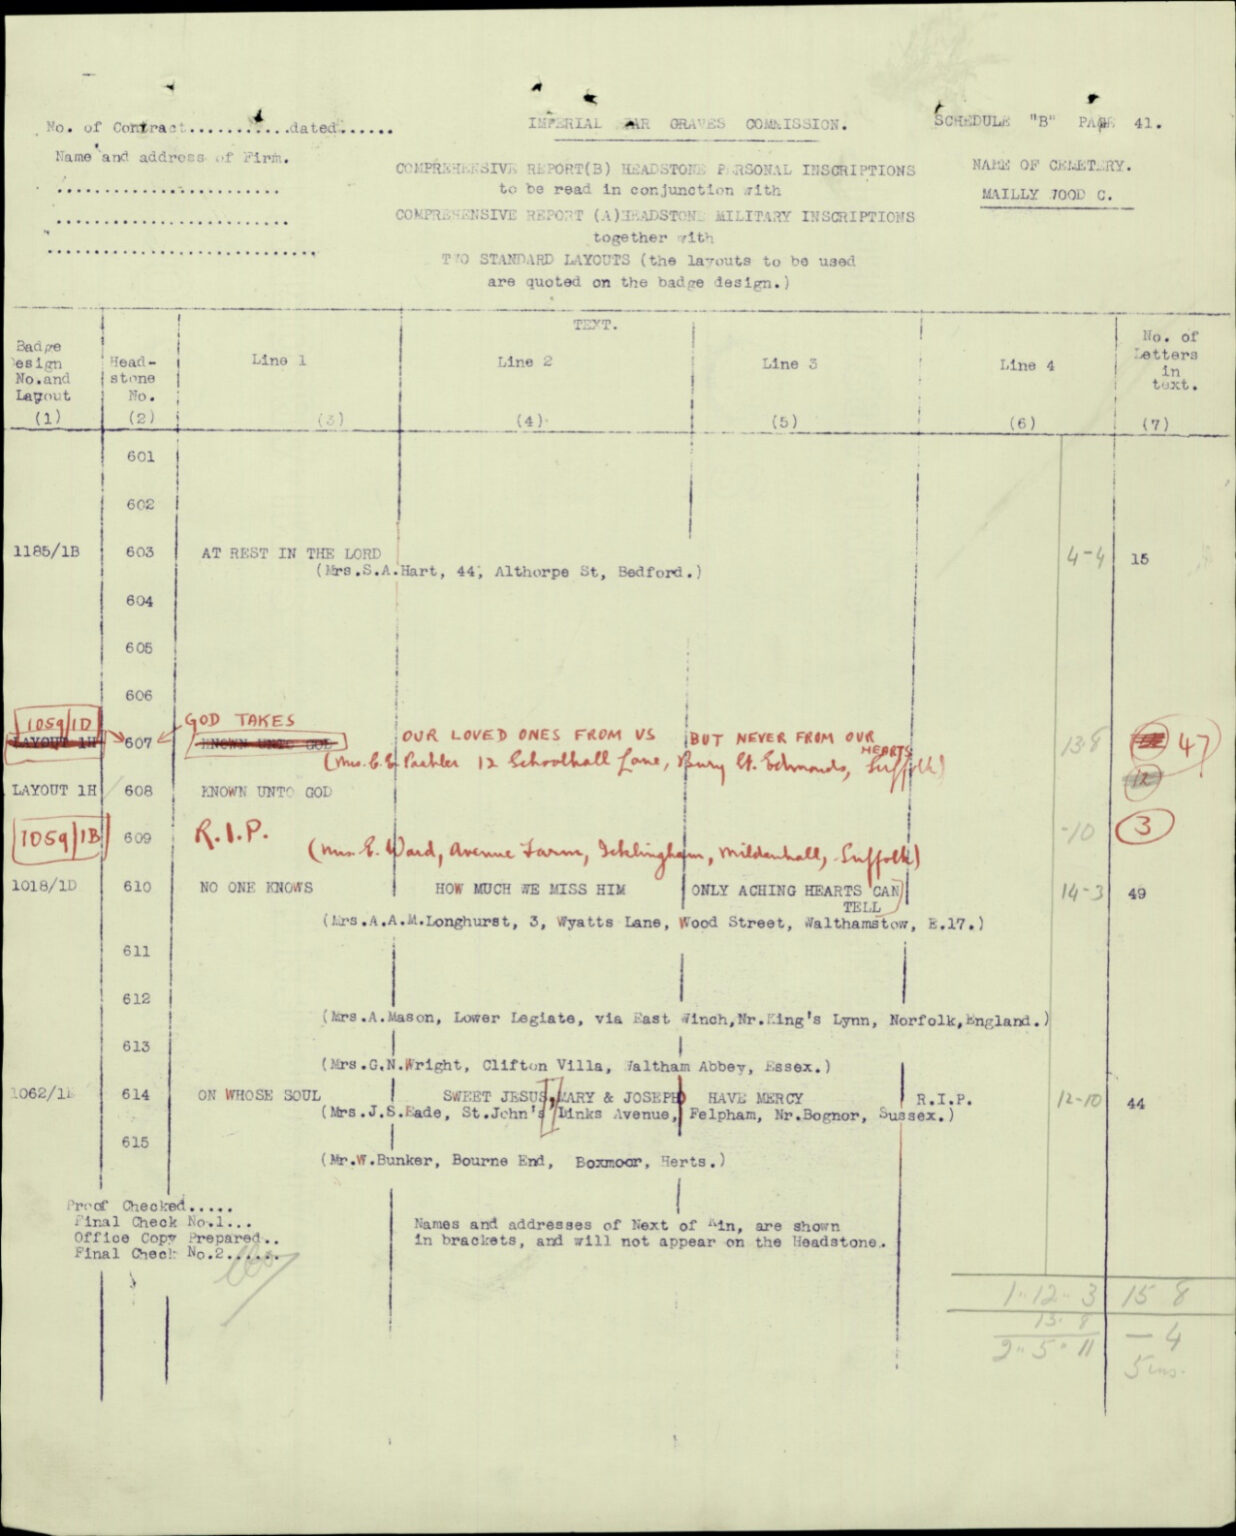 No. of Contract...........dated......
IMPERIAL WAR GRAVES COMMISSION.
SCHEDULE "B" PAGE 41.
Name and address of Firm.
COMPREHENSIVE REPORT(B) HEADSTONE PERSONAL INSCRIPTIONS
to be read in conjunction with
COMPREHENSIVE REPORT (A)HEADSTONE MILITARY INSCRIPTIONS
together with
TWO STANDARD LAYOUTS (the layouts to be used
are quoted on the badge design.)
NAME OF CEMETERY.
MAILLY WOOD C.
TEXT.
Badge Design No.and Layout (1)
Head-stone No. (2)
Line 1 (3)
Line 2 (4)
Line 3 (5)
Line 4 (6)
No. of Letters in text. (7)
601
602
1185/1B 603 AT REST IN THE LORD 4-4 15
(Mrs.S.A.Hart, 44, Althorpe St, Bedford.)
604
605
606
1059/1D GOD TAKES
LAYOUT 1H 607 KNOWN UNTO GOD OUR LOVED ONES FROM US BUT NEVER FROM OUR HEARTS 13.8 47
12 Schoolhall Lane, Bury St. Edmonds, Suffolk)
LAYOUT 1H 608 KNOWN UNTO GOD 12
1059/1B 609 R.I.P. -10 3
(Mrs. E. Ward, Avenue Farm, Icklingham, Mildenhall, Suffolk)
1018/1D 610 NO ONE KNOWS HOW MUCH WE MISS HIM ONLY ACHING HEARTS CAN TELL 14-3 49
(Mrs.A.A.M.Longhurst, 3, Wyatts Lane, Wood Street, Walthamstow, E.17.)
611
612
(Mrs.A.Mason, Lower Legiate, via East Winch,Nr.King's Lynn, Norfolk,England.)
613
(Mrs.G.N.Wright, Clifton Villa, Waltham Abbey, Essex.)
1062/1E 614 ON WHOSE SOUL SWEET JESUS, MARY & JOSEPH HAVE MERCY R.I.P. 12-10 44
(Mrs.J.S.Eade, St.John's Links Avenue, Felpham, Nr.Bognor, Sussex.)
615
(Mr.W.Bunker, Bourne End, Boxmoor, Herts.)
Proof Checked.....
Final Check No.1...
Office Copy Prepared..
Final Check No.2......
Names and addresses of Next of Kin, are shown
in brackets, and will not appear on the Headstone.
1.12.3 15 8
13.8 - 4
2.5.11